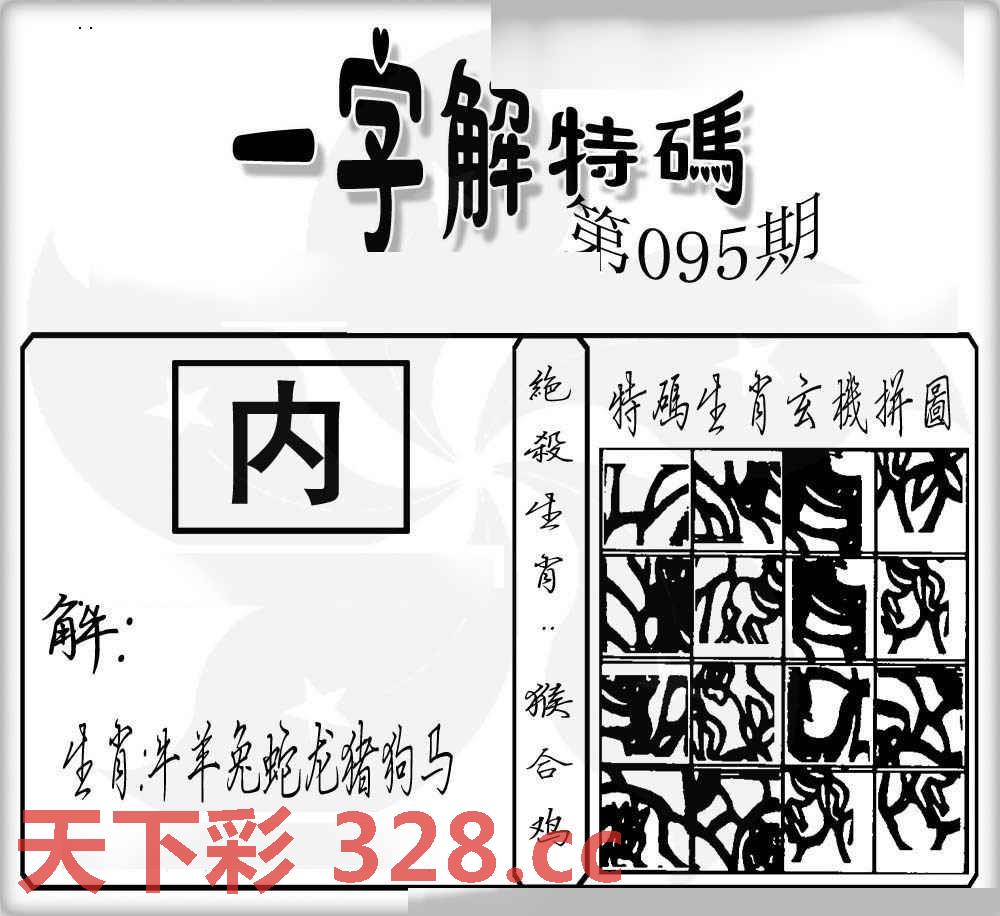 一字解特碼
第095期
内
解：
生肖:牛羊兔蛇龙猪狗马
絶殺生肖:猴合鸡
特碼生肖玄機拼圖
天下彩 328.cc